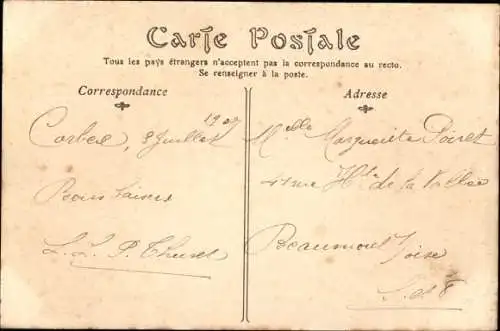 Carte Postale
Tous les pays étrangers n'acceptent pas la correspondance au recto.
Se renseigner à la poste.
Correspondance
Adresse
Corbeil, 8 Juillet
Bons baisers
Melle Marguerite Poiret
rue Hte de la Vallée
Beaumont s/Oise
S. et O.